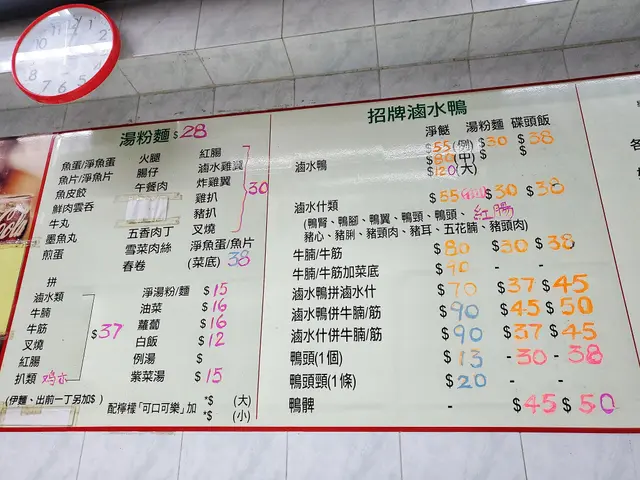 湯粉麵 $28
魚蛋/淨魚蛋 火腿 紅腸
魚片/淨魚片 腸仔 滷水雞翼
魚皮餃 午餐肉 炸雞翼
鮮肉雲吞 雞扒 30
牛丸 豬扒
墨魚丸 五香肉丁 叉燒
煎蛋 雪菜肉絲 淨魚蛋/魚片
春卷 (菜底) 38
拼
滷水類 淨湯粉/麵 $15
牛腩 油菜 $16
牛筋 $37 蘿蔔 $16
叉燒 白飯 $12
紅腸 例湯 $
扒類 鸡亦 紫菜湯 $15
(伊麵、出前一丁另加$ ) 配檸檬「可口可樂」加 *$ (大)
*$ (小)
招牌滷水鴨
淨餸 湯粉麵 碟頭飯
滷水鴨 $55(例) $30 $38
$80(中) $ $
$120(大)
滷水什類 $55 $30 $38
(鴨腎、鴨腳、鴨翼、鴨頸、鴨頭、紅腸
豬心、豬脷、豬頸肉、豬耳、五花腩、豬頭肉)
牛腩/牛筋 $80 $30 $38
牛腩/牛筋加菜底 $90 - -
滷水鴨拼滷水什 $70 $37 $45
滷水鴨併牛腩/筋 $90 $45 $50
滷水什併牛腩/筋 $90 $37 $45
鴨頭(1個) $13 - 30 - 38
鴨頭頸(1條) $20 - -
鴨髀 - $45 $50
12 1 2 4 5 6 7 8 10 11